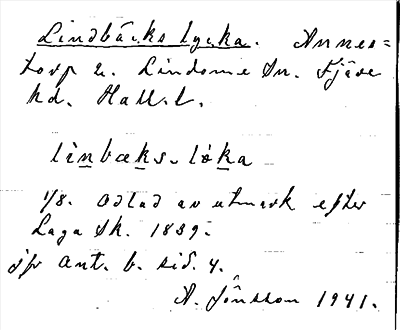 Lindbäcks lycka. Annes=
torp 2. Lindome Sn. Fjäre
hd. Hall. l.
linbæks. lóka
1/8. Odlad av utmark efter
Laga Sk. 1839.
jfr ant. b. sid. 4.
A. Jönsson 1941.